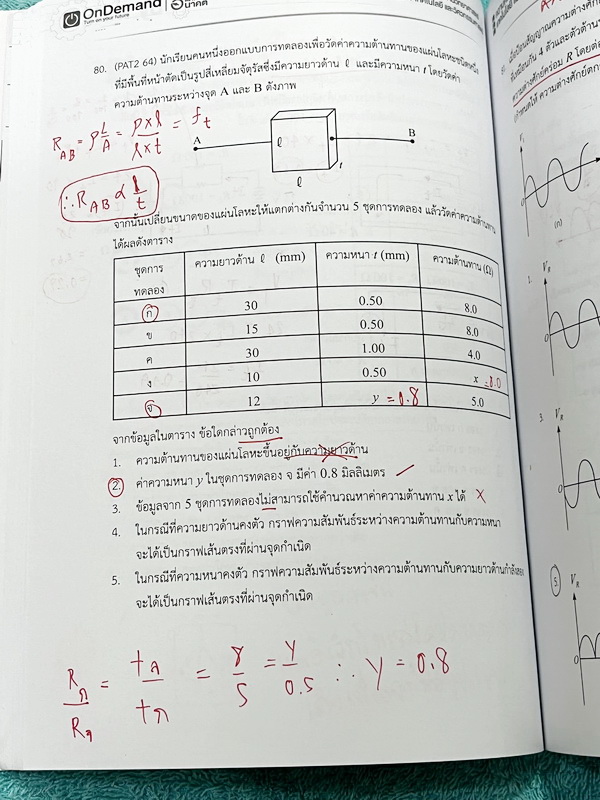 OnDemand
Turn on your Future
80. (PAT2 64) นักเรียนคนหนึ่งออกแบบการทดลองเพื่อวัดค่าความต้านทานของแผ่นโลหะชนิดหนึ่ง
ที่มีพื้นที่หน้าตัดเป็นรูปสี่เหลี่ยมจัตุรัสซึ่งมีความยาวด้าน ℓ และมีความหนา t โดยวัดค่า
ความต้านทานระหว่างจุด A และ B ดังภาพ
R_AB = ρ L/A = ρ×ℓ/ℓ×t = ρ/t
A ℓ B
t
ℓ
∴ R_AB ∝ 1/t
จากนั้นเปลี่ยนขนาดของแผ่นโลหะให้แตกต่างกันจำนวน 5 ชุดการทดลอง แล้ววัดค่าความต้านทาน
ได้ผลดังตาราง
ชุดการทดลอง ความยาวด้าน ℓ (mm) ความหนา t (mm) ความต้านทาน (Ω)
ก 30 0.50 8.0
ข 15 0.50 8.0
ค 30 1.00 4.0
ง 10 0.50 x =8.0
จ 12 y =0.8 5.0
จากข้อมูลในตาราง ข้อใดกล่าวถูกต้อง
1. ความต้านทานของแผ่นโลหะขึ้นอยู่กับความยาวด้าน
2. ค่าความหนา y ในชุดการทดลอง จ มีค่า 0.8 มิลลิเมตร
3. ข้อมูลจาก 5 ชุดการทดลองไม่สามารถใช้คำนวณหาค่าความต้านทาน x ได้
4. ในกรณีที่ความยาวด้านคงตัว กราฟความสัมพันธ์ระหว่างความต้านทานกับความหนา
จะได้เป็นกราฟเส้นตรงที่ผ่านจุดกำเนิด
5. ในกรณีที่ความหนาคงตัว กราฟความสัมพันธ์ระหว่างความต้านทานกับความยาวด้านกำลังสอง
จะได้เป็นกราฟเส้นตรงที่ผ่านจุดกำเนิด
= 8/5 = y/0.5 ∴ y = 0.8
(ก)
1.
V_R
3.
V_R
5.
V_R